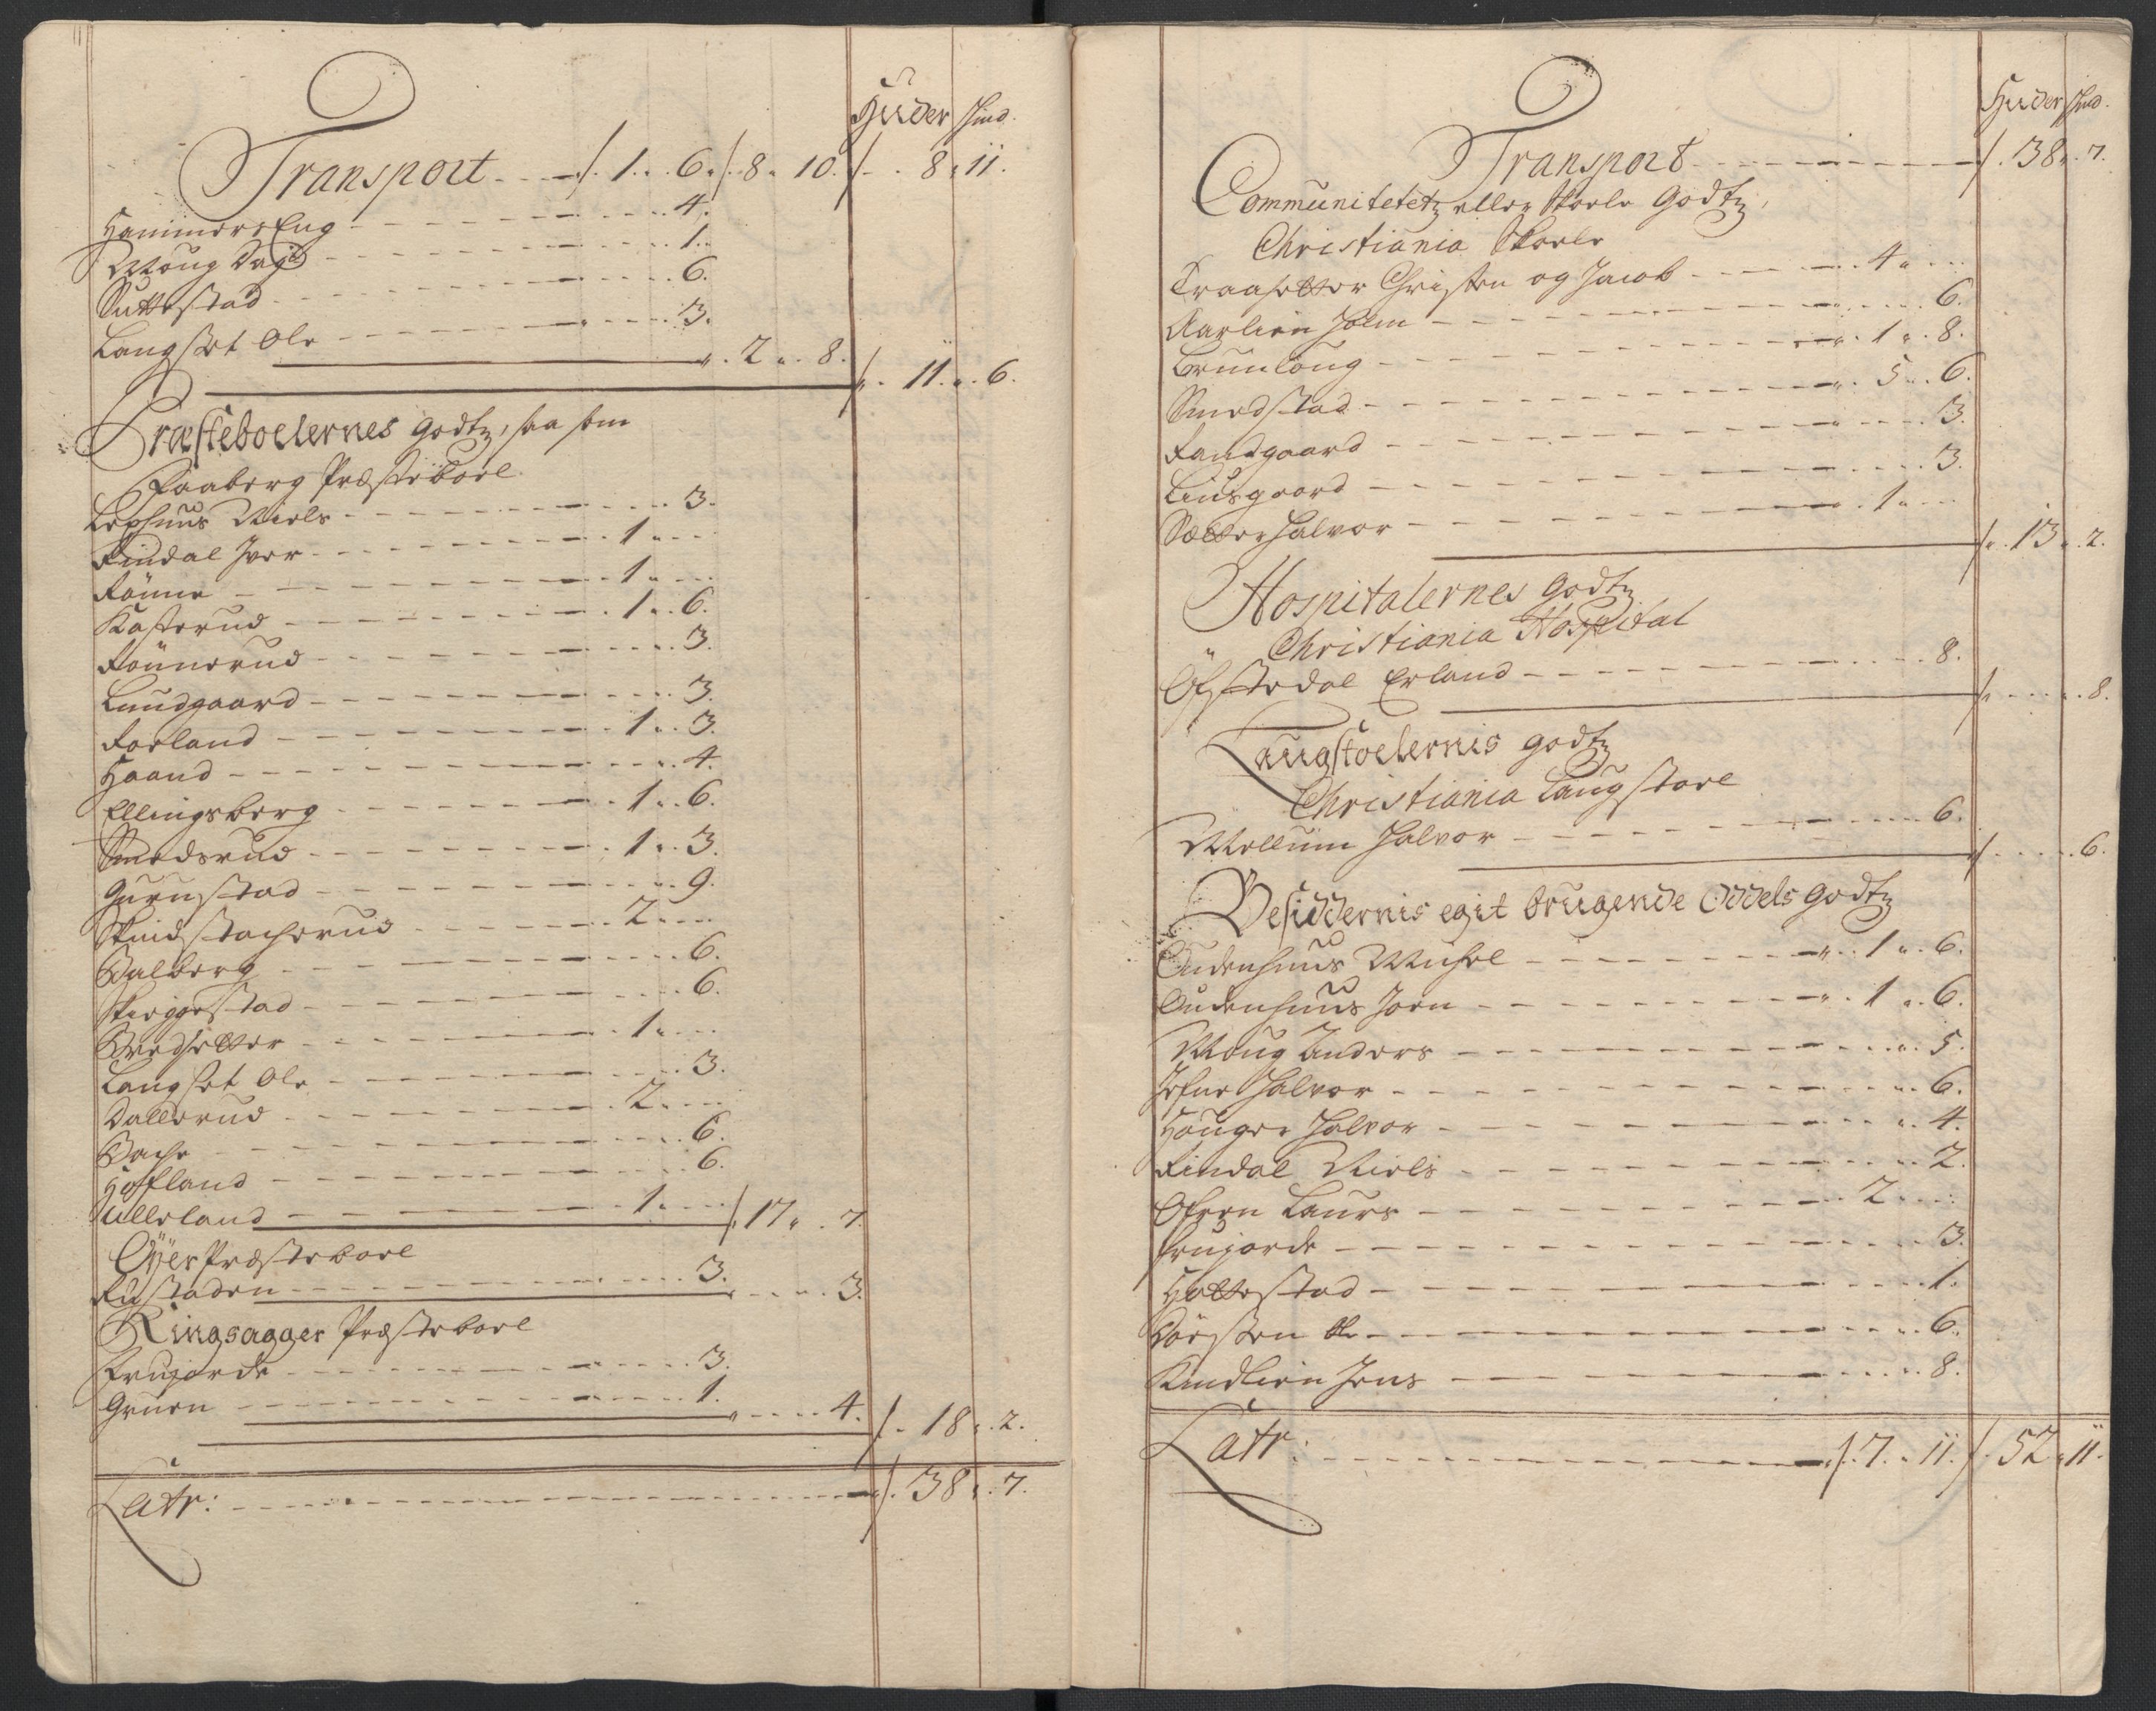 Huder skind.
Transport - - - /. 1. 6. /. 8. 10. /. 8. 11.
Hammers Eng - - - 4.
Moug Dag - - - 1.
Suttestad - - - 6.
Langset Ole - - - 3.
2. 8. /. 11. 6.
Præsteboelernes Godtz, saa som
Faaberg Præsteboel
Niels - - - 3.
Rindal Iver - - - 1. -
Rönne - - - 1. -
Kasterud - - - 1. 6.
Rönnerud - - - 3.
Lundgaard - - - 3.
Rorland - - - 1. 3.
Haand - - - 4.
Ellingsberg - - - 1. 6.
Smedsrud - - - 1. 3.
Gurustad - - - 9.
- - - 2. -
Balberg - - - 6.
Skieggestad - - - 6.
Bredsetter - - - 1. -
Langset Ole - - - 3.
Dallerud - - - 2. -
Bache - - - 6.
Hofland - - - 6.
Ulleland - - - 1. - /. 17. 7.
Öyer Præsteboel
Rustaden - - - 3. - - 3.
Ringsagger Præsteboel
Frujorde - - - 3.
Gruen - - - 1. - - 4. /. 18. 2.
Latr: - - - /. 38. 7.
Huder skind.
Transport - - - /. 38. 7.
Communitetetz eller Skoele Godtz,
Christiania Skoele
Kraasetter Christen og Jacob - - - 4. -
Aarlien Joen - - - 6.
Brunloug - - - 1. 8.
Smedstad - - - 5. 6.
Randgaard - - - 3.
Liusgaard - - - 3.
Sætter Halvor - - - 1. -
/. 13. 2.
Hospitalernes Godtz
Christiania Hospital
Öfstedal Erland - - - 8.
/. - 8.
Laugstoelernis godtz
Christiania Laugstoel
Mellum Halvor - - - 6.
/. - 6.
Besiddernis eget brugende Oddels Godtz
Audenhuus Michel - - - 1. 6.
Audenhuus Joen - - - 1. 6.
Moug Anders - - - 5.
Jefne Halvor - - - 6.
Houger Halvor - - - 4.
Rindal Niels - - - 2.
Ofren Laurs - - - 2. -
Frujorde - - - 3.
Hattestad - - - 1.
Börsten - - - 6.
Kindlien Jens - - - 8.
Latr: - - - /. 7. 11. /. 52. 11.